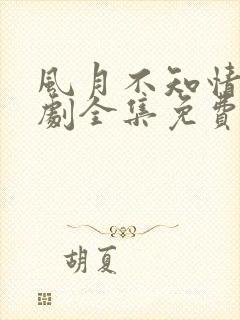 風月不知情
劇全集免費
胡夏